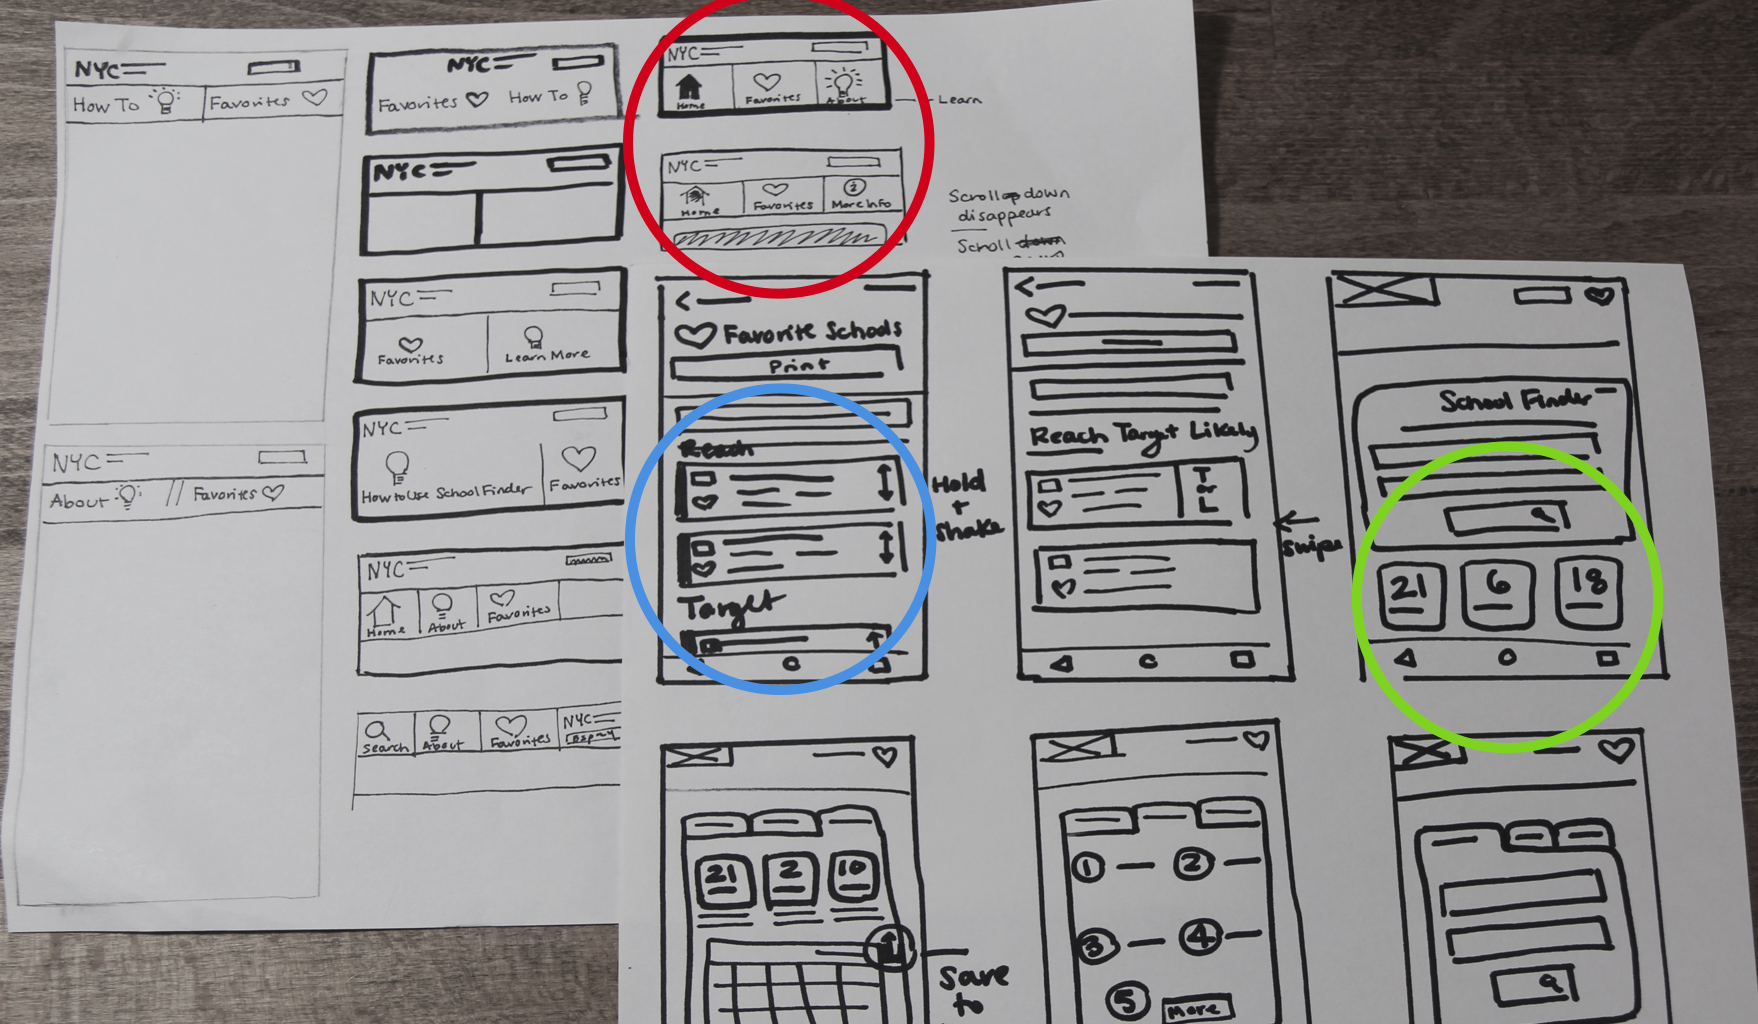 NYC
How To Favorites
NYC
About // Favorites
NYC
Favorites How To
NYC
NYC
Favorites Learn More
NYC
How to Use School Finder Favorites
NYC
Home About Favorites
Search About Favorites NYC
NYC
Home Favorites About
Learn
NYC
Home Favorites More Info
i
Scroll down
disappears
Scroll down
Favorite Schools
Print
Reach
Target
Hold
+
Shake
Reach Target Likely
T
or
L
Swipe
School Finder
21 6 18
21 2 10
Save
to
1 2
3 4
5 More